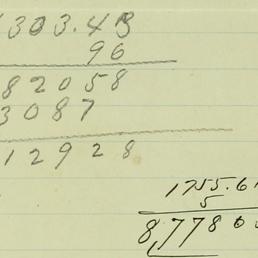 303.43
96
82058
3087
12928
1755.6
5
8,7780